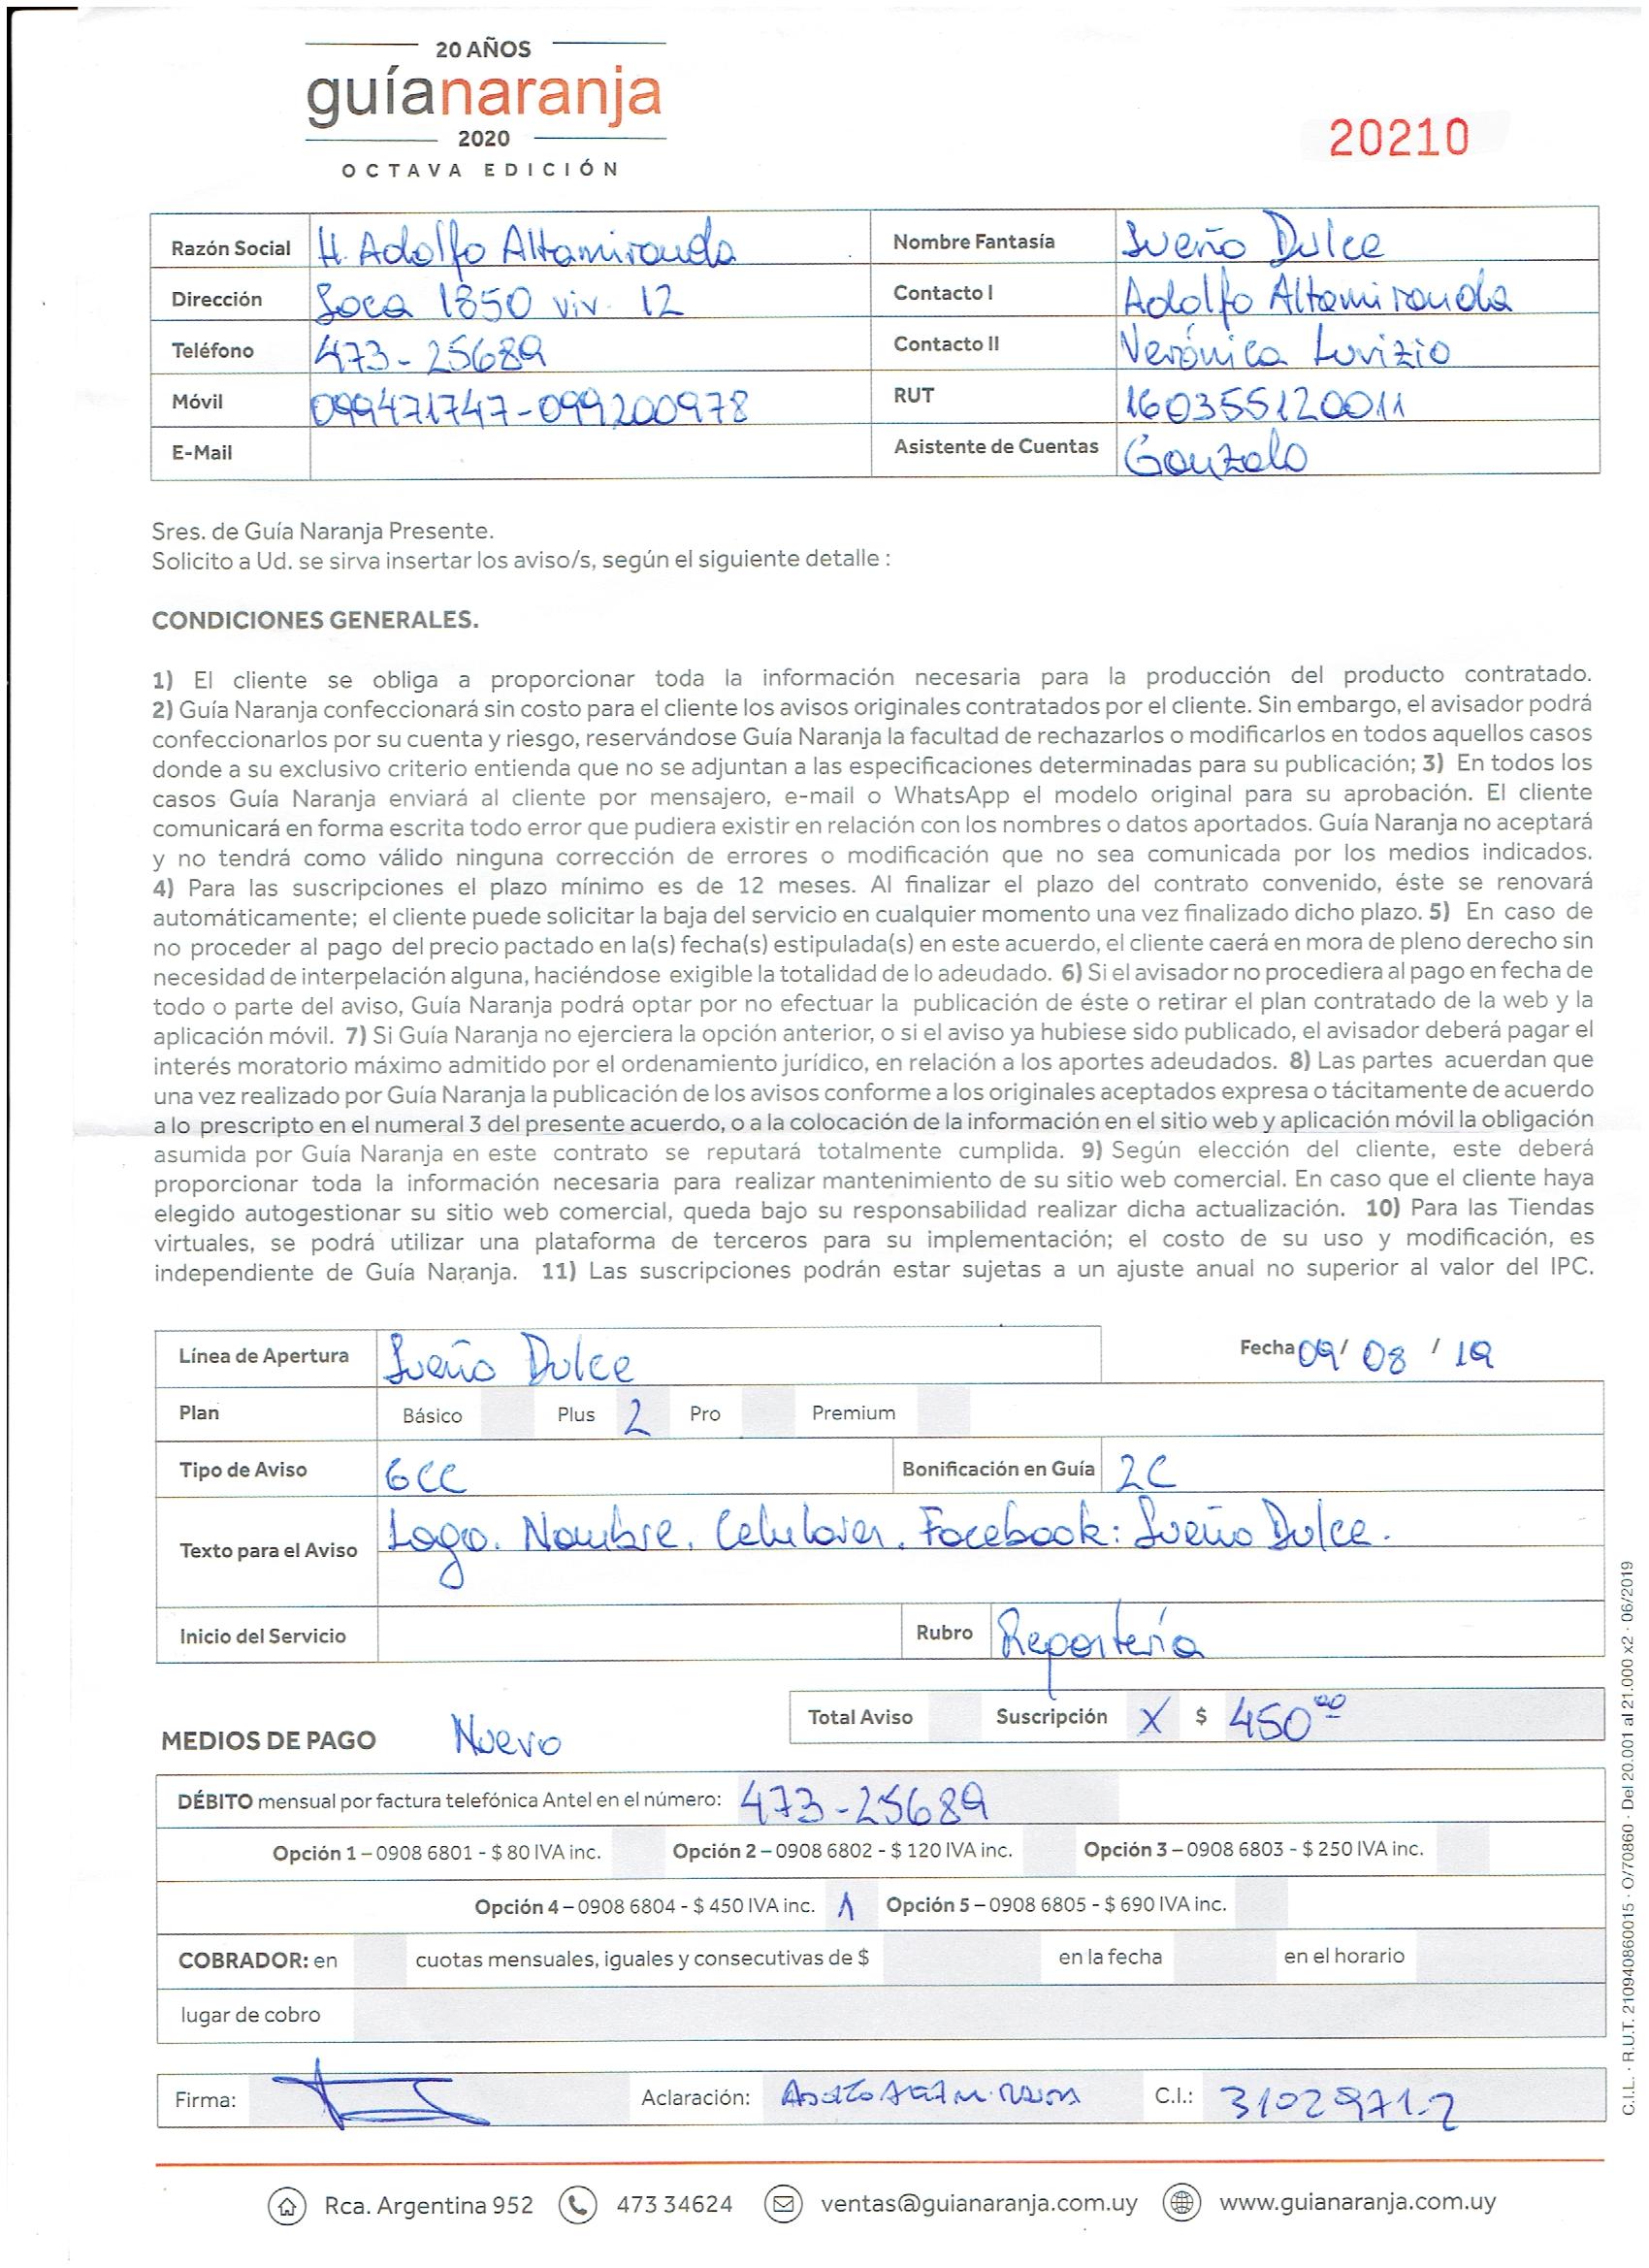 20 AÑOS
guíanaranja
2020
OCTAVA EDICIÓN
20210
Razón Social H. Adolfo Altamiranda Nombre Fantasía Sueño Dulce
Dirección Soca 1850 viv. 12 Contacto I Adolfo Altamiranda
Teléfono 473-25689 Contacto II Verónica
Móvil 099471747-099200978 RUT 160355120011
E-Mail Asistente de Cuentas Gonzalo
Sres. de Guía Naranja Presente.
Solicito a Ud. se sirva insertar los aviso/s, según el siguiente detalle :
CONDICIONES GENERALES.
1) El cliente se obliga a proporcionar toda la información necesaria para la producción del producto contratado.
2) Guía Naranja confeccionará sin costo para el cliente los avisos originales contratados por el cliente. Sin embargo, el avisador podrá
confeccionarlos por su cuenta y riesgo, reservándose Guía Naranja la facultad de rechazarlos o modificarlos en todos aquellos casos
donde a su exclusivo criterio entienda que no se adjuntan a las especificaciones determinadas para su publicación; 3) En todos los
casos Guía Naranja enviará al cliente por mensajero, e-mail o WhatsApp el modelo original para su aprobación. El cliente
comunicará en forma escrita todo error que pudiera existir en relación con los nombres o datos aportados. Guía Naranja no aceptará
y no tendrá como válido ninguna corrección de errores o modificación que no sea comunicada por los medios indicados.
4) Para las suscripciones el plazo mínimo es de 12 meses. Al finalizar el plazo del contrato convenido, éste se renovará
automáticamente; el cliente puede solicitar la baja del servicio en cualquier momento una vez finalizado dicho plazo. 5) En caso de
no proceder al pago del precio pactado en la(s) fecha(s) estipulada(s) en este acuerdo, el cliente caerá en mora de pleno derecho sin
necesidad de interpelación alguna, haciéndose exigible la totalidad de lo adeudado. 6) Si el avisador no procediera al pago en fecha de
todo o parte del aviso, Guía Naranja podrá optar por no efectuar la publicación de éste o retirar el plan contratado de la web y la
aplicación móvil. 7) Si Guía Naranja no ejerciera la opción anterior, o si el aviso ya hubiese sido publicado, el avisador deberá pagar el
interés moratorio máximo admitido por el ordenamiento jurídico, en relación a los aportes adeudados. 8) Las partes acuerdan que
una vez realizado por Guía Naranja la publicación de los avisos conforme a los originales aceptados expresa o tácitamente de acuerdo
a lo prescripto en el numeral 3 del presente acuerdo, o a la colocación de la información en el sitio web y aplicación móvil la obligación
asumida por Guía Naranja en este contrato se reputará totalmente cumplida. 9) Según elección del cliente, este deberá
proporcionar toda la información necesaria para realizar mantenimiento de su sitio web comercial. En caso que el cliente haya
elegido autogestionar su sitio web comercial, queda bajo su responsabilidad realizar dicha actualización. 10) Para las Tiendas
virtuales, se podrá utilizar una plataforma de terceros para su implementación; el costo de su uso y modificación, es
independiente de Guía Naranja. 11) Las suscripciones podrán estar sujetas a un ajuste anual no superior al valor del IPC.
Línea de Apertura Sueño Dulce Fecha 09/ 08 / 19
Plan Básico Plus 2 Pro Premium
Tipo de Aviso 6CC Bonificación en Guía 2C
Texto para el Aviso Logo. Nombre. Celulares. Facebook: Sueño Dulce.
Inicio del Servicio Rubro Repostería
Total Aviso Suscripción X $ 450 00
MEDIOS DE PAGO Nuevo
DÉBITO mensual por factura telefónica Antel en el número: 473-25689
Opción 1 – 0908 6801 - $ 80 IVA inc. Opción 2 – 0908 6802 - $ 120 IVA inc. Opción 3 – 0908 6803 - $ 250 IVA inc.
Opción 4 – 0908 6804 - $ 450 IVA inc. 1 Opción 5 – 0908 6805 - $ 690 IVA inc.
COBRADOR: en cuotas mensuales, iguales y consecutivas de $ en la fecha en el horario
lugar de cobro
Firma: Aclaración: Adolfo Altamiranda C.I.: 3102971-2
Rca. Argentina 952 473 34624 ventas@guianaranja.com.uy www.guianaranja.com.uy
C.I.L. · R.U.T. 210940860015 · O/70860 · Del 20.001 al 21.000 x2 · 06/2019